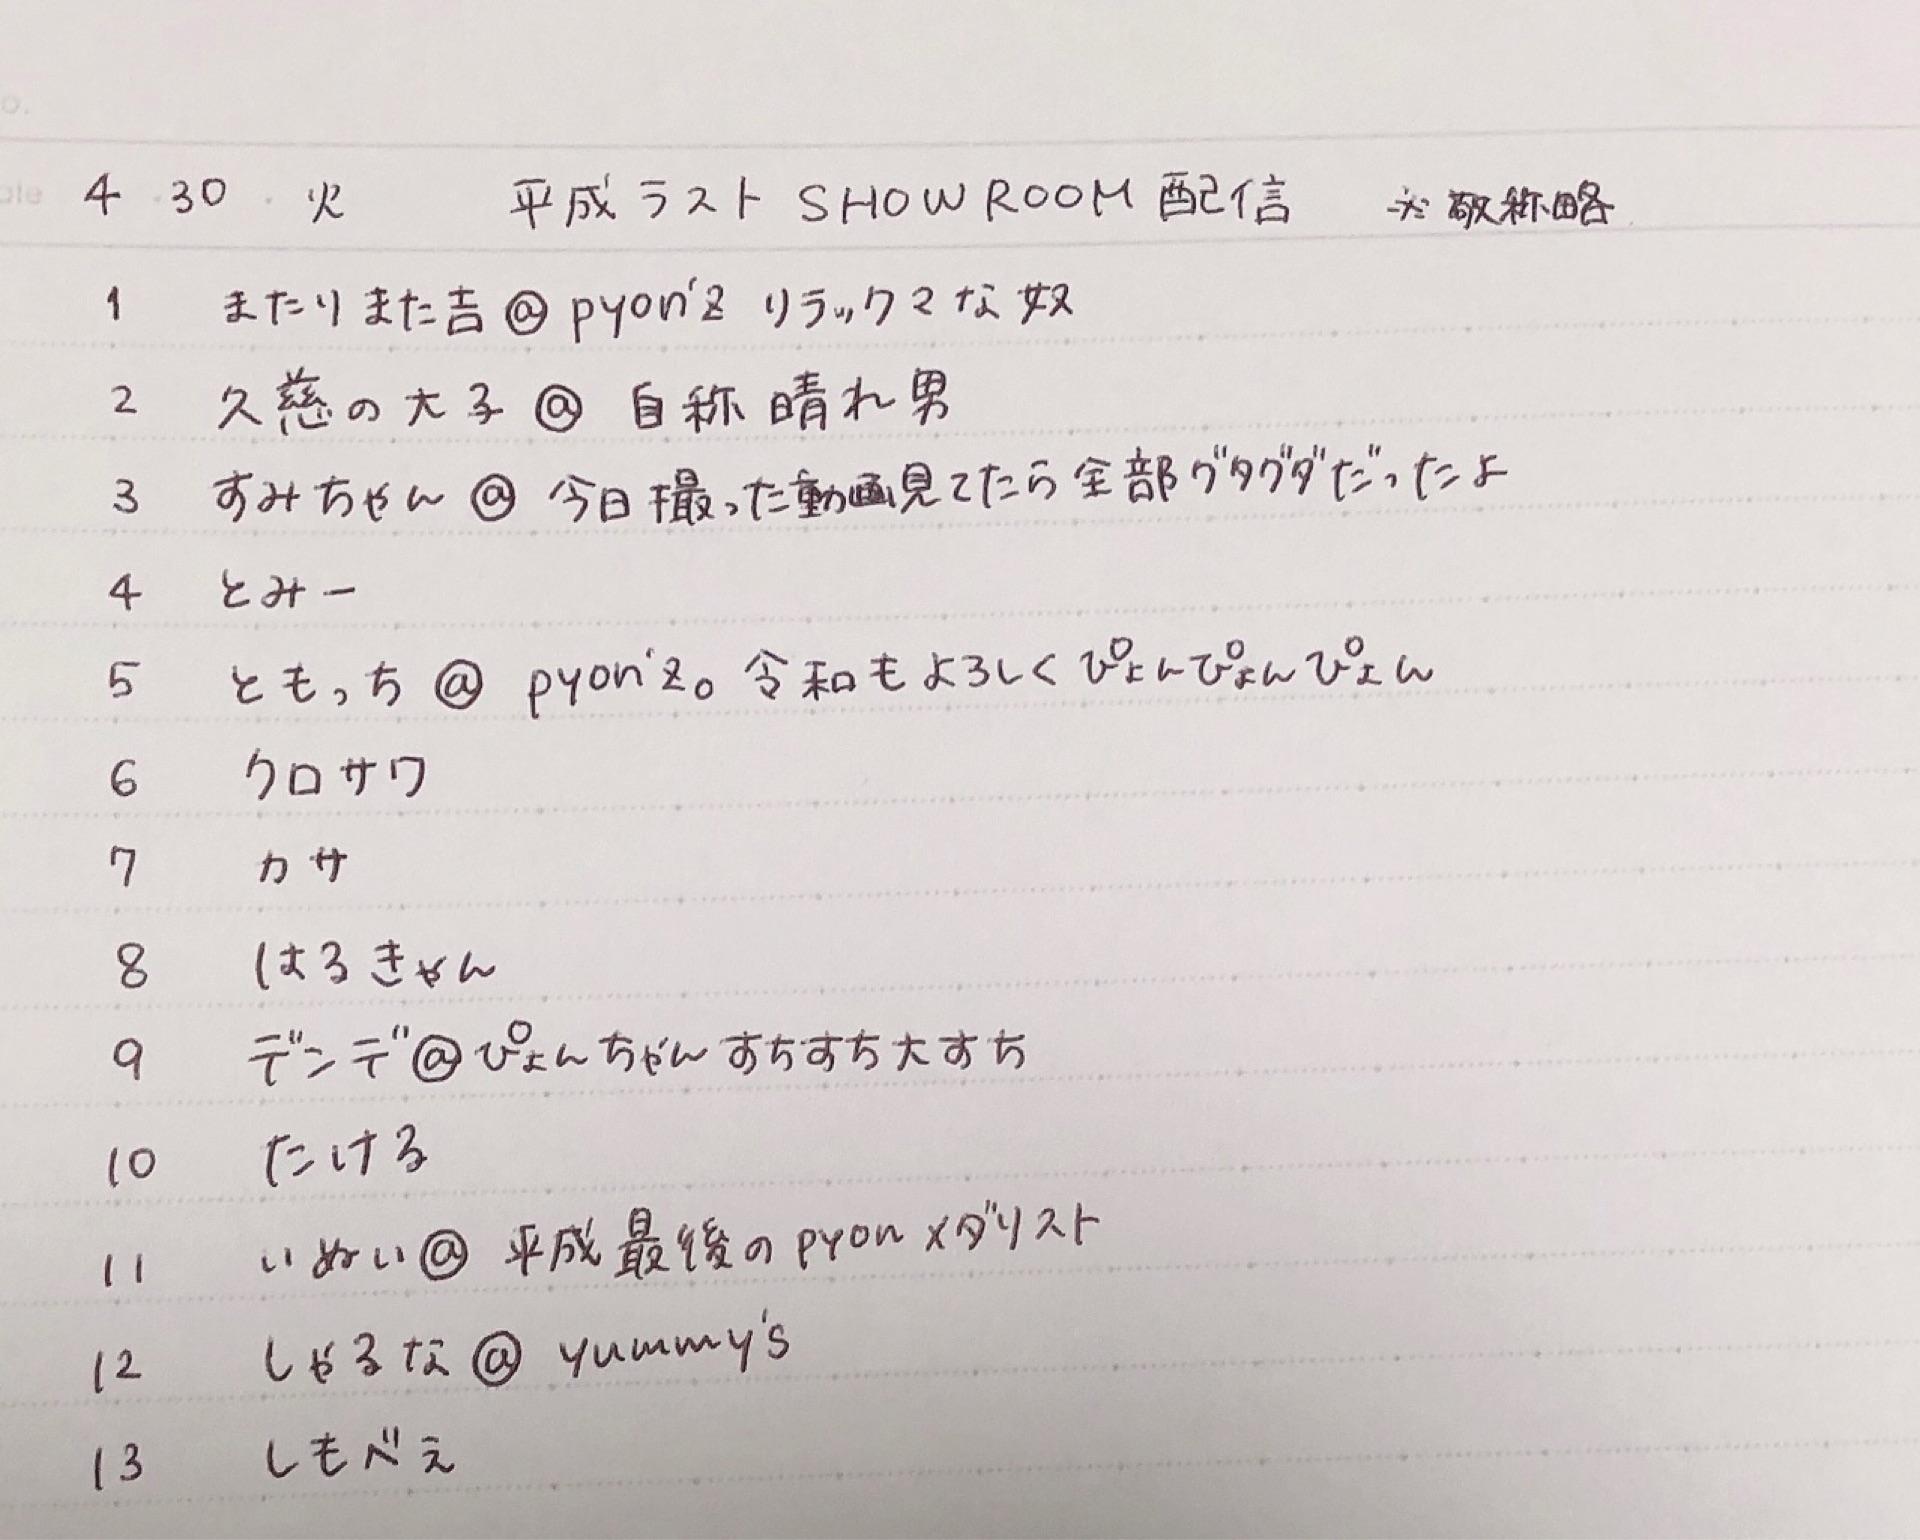 o.
ate 4・30・火 平成ラスト SHOWROOM 配信 ※敬称略
1 またりまた吉@pyon'z リラックマな奴
2 久慈の大子@自称晴れ男
3 すみちゃん@今日撮った動画見てたら全部グタグダだったよ
4 とみー
5 ともっち@pyon'z。令和もよろしくぴょんぴょんぴょん
6 クロサワ
7 カサ
8 はるきゃん
9 デンデ@ぴょんちゃんすちすち大すち
10 たける
11 いぬい@平成最後のpyonメダリスト
12 しゃるな@yummy's
13 しもべえ